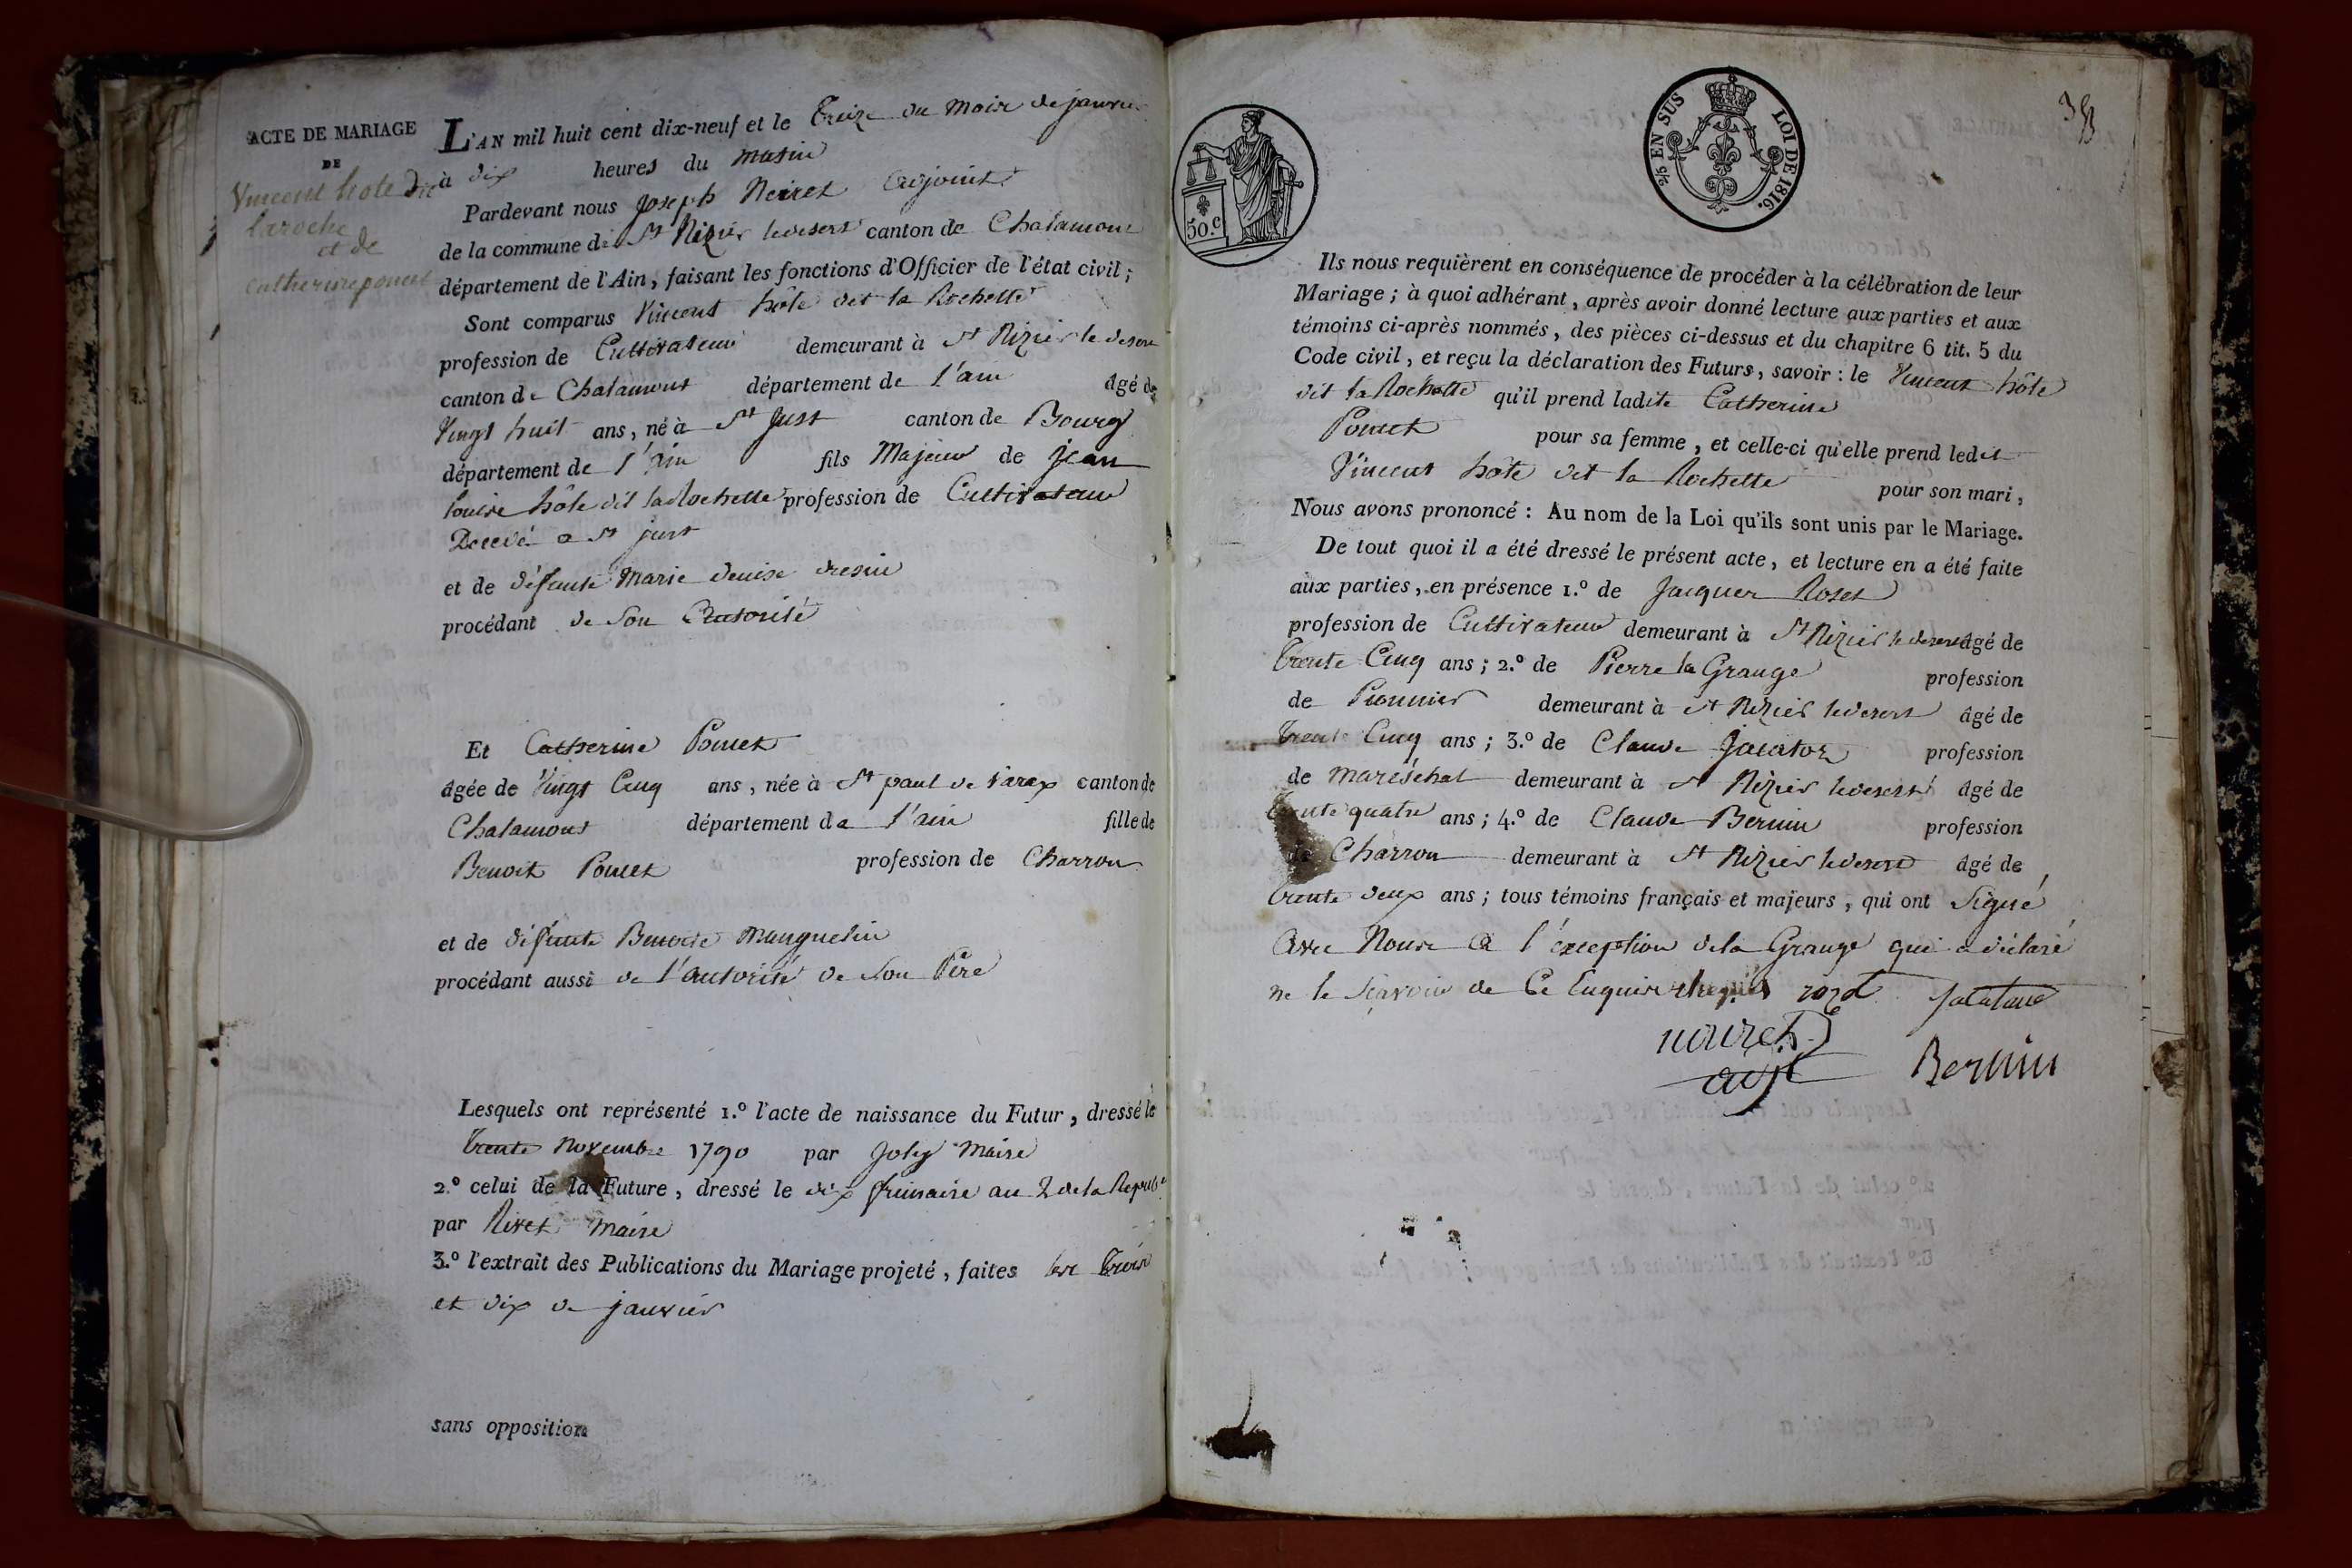 ACTE DE MARIAGE
DE
Vincent hote Dit
laroche
et de
catherine poncet
L'AN mil huit cent dix-neuf et le Treize du Mois de janvier
à dix heures du Matin
Pardevant nous Joseph Neiret adjoint
de la commune de St Nizier le desert canton de Chalamont
département de l'Ain, faisant les fonctions d'Officier de l'état civil ;
Sont comparus Vincent hôte dit la Rochette
profession de Cultivateur demeurant à St Nizier le desert
canton de Chalamont département de l'ain âgé de
Vingt huit ans, né à St Just canton de Bourg
département de l'ain fils Majeur de jean
louise hôte dit la Rochette profession de Cultivateur
Décédé a St just
et de défunte Marie denise
procédant de Son Autorité
Et Catherine Poncet
âgée de Vingt Cinq ans, née à St paul de Varax canton de
Chalamont département de l'ain fille de
Benoit Poncet profession de Charron
et de défunte Benoite Manguelin
procédant aussi de l'autorité de Son Père
Lesquels ont représenté 1.º l'acte de naissance du Futur, dressé le
trente Novembre 1790 par Joly Maire
2.º celui de la Future, dressé le dix frimaire an 2 de la Republ
par Rivet Maire
3.º l'extrait des Publications du Mariage projeté, faites les trois
et dix de janvier
sans opposition
50.C
2/5 EN SUS LOI DE 1816.
38
Ils nous requièrent en conséquence de procéder à la célébration de leur
Mariage ; à quoi adhérant, après avoir donné lecture aux parties et aux
témoins ci-après nommés, des pièces ci-dessus et du chapitre 6 tit. 5 du
Code civil, et reçu la déclaration des Futurs, savoir : le Vincent hôte
dit la Rochette qu'il prend ladite Catherine
Poncet pour sa femme, et celle-ci qu'elle prend ledit
Vincent hôte dit la Rochette pour son mari,
Nous avons prononcé : Au nom de la Loi qu'ils sont unis par le Mariage.
De tout quoi il a été dressé le présent acte, et lecture en a été faite
aux parties, en présence 1.º de Jacques Roset
profession de Cultivateur demeurant à St Nizier le desert âgé de
trente Cinq ans ; 2.º de Pierre la Grange profession
de Pionnier demeurant à St Nizier le desert âgé de
trente Cinq ans ; 3.º de Claude Jacator profession
de maréchal demeurant à St Nizier le desert âgé de
trente quatre ans ; 4.º de Claude Bernin profession
de Charron demeurant à St Nizier le desert âgé de
trente deux ans ; tous témoins français et majeurs, qui ont Signé
Avec Nous a l'exception de la Grange qui a déclaré
ne le Scavoir de Ce Enquis
neiret
adjt
Bernin